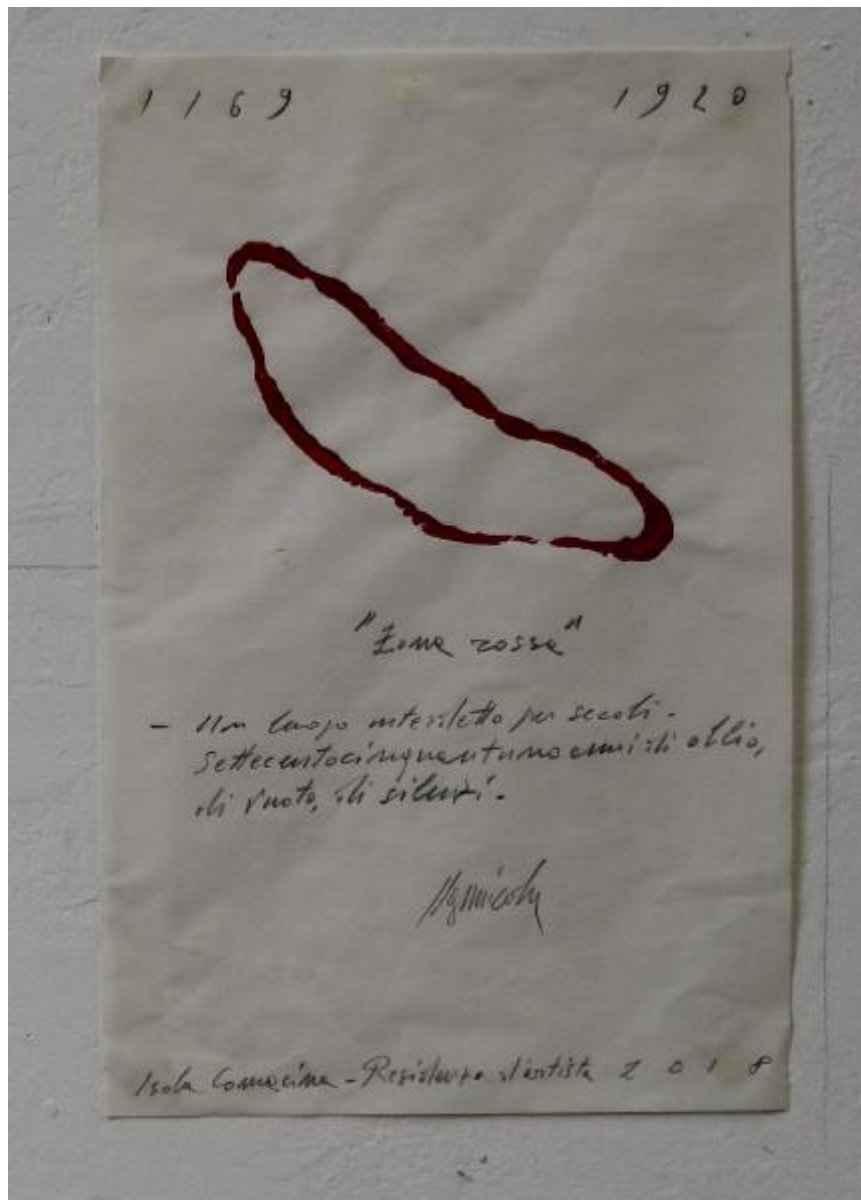 1169 1920
"Zona rossa"
- Un luogo interdetto per secoli -
settecentocinquantuno anni di oblio,
di vuoto, di silenzi.
Isola Comacina - Residenza d'artista 2018